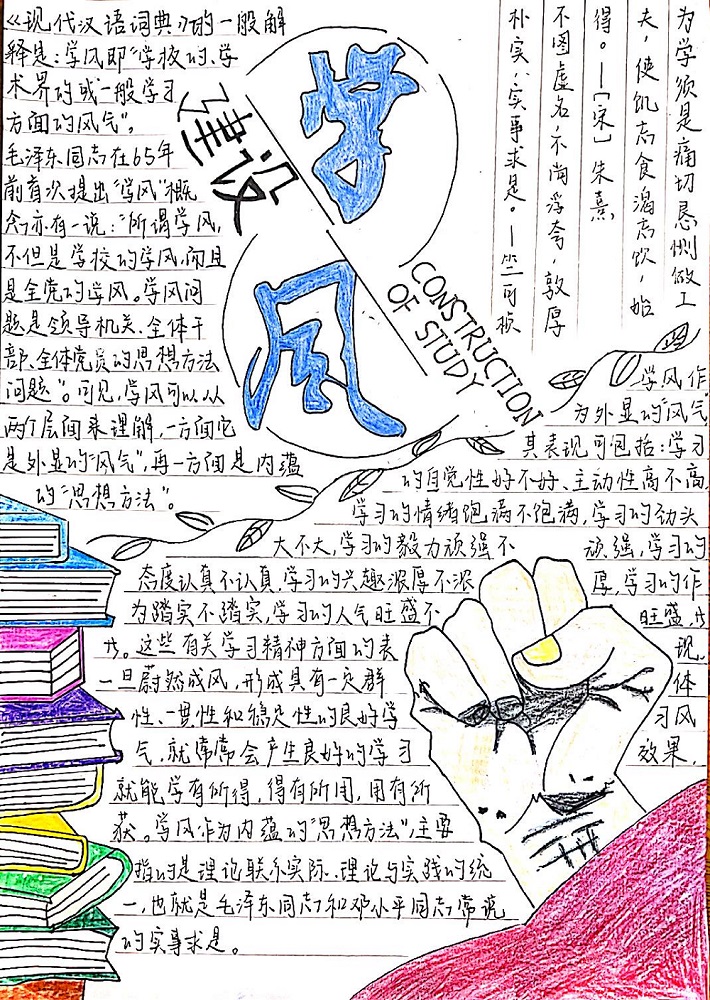 《现代汉语词典》的一般解
释是：学风即“学校的、学
术界的或一般学习
方面的风气”。
毛泽东同志在65年
前首次提出“学风”概
念，亦有一说：“所谓学风，
不但是学校的学风，而且
是全党的学风。学风问
题是领导机关、全体干
部、全体党员的思想方法
问题”。可见，学风可以从
两个层面来理解，一方面它
是外显的“风气”，再一方面是内蕴
的“思想方法”。
建设
学
风
CONSTRUCTION
OF STUDY
为学须是痛切恳恻做工
夫，使饥忘食渴忘饮，始
得。—[宋]朱熹
不图虚名，不尚浮夸，敦厚
朴实，实事求是。—竺可桢
学风作
为外显的“风气”
其表现可包括：学习
的自觉性好不好、主动性高不高，
学习的情绪饱满不饱满，学习的劲头
大不大，学习的毅力顽强不 顽强，学习的
态度认真不认真，学习的兴趣浓厚不浓 厚，学习的作
为踏实不踏实，学习的人气旺盛不 旺盛，步
步。这些有关学习精神方面的表 现，
一旦蔚然成风，形成具有一定群 体
性、一贯性和稳定性的良好学 习风
气，就常常会产生良好的学习 效果，
就能学有所得，得有所用，用有所
获。学风作为内蕴的“思想方法”，主要
指的是理论联系实际、理论与实践的统
一，也就是毛泽东同志和邓小平同志常说
的实事求是。